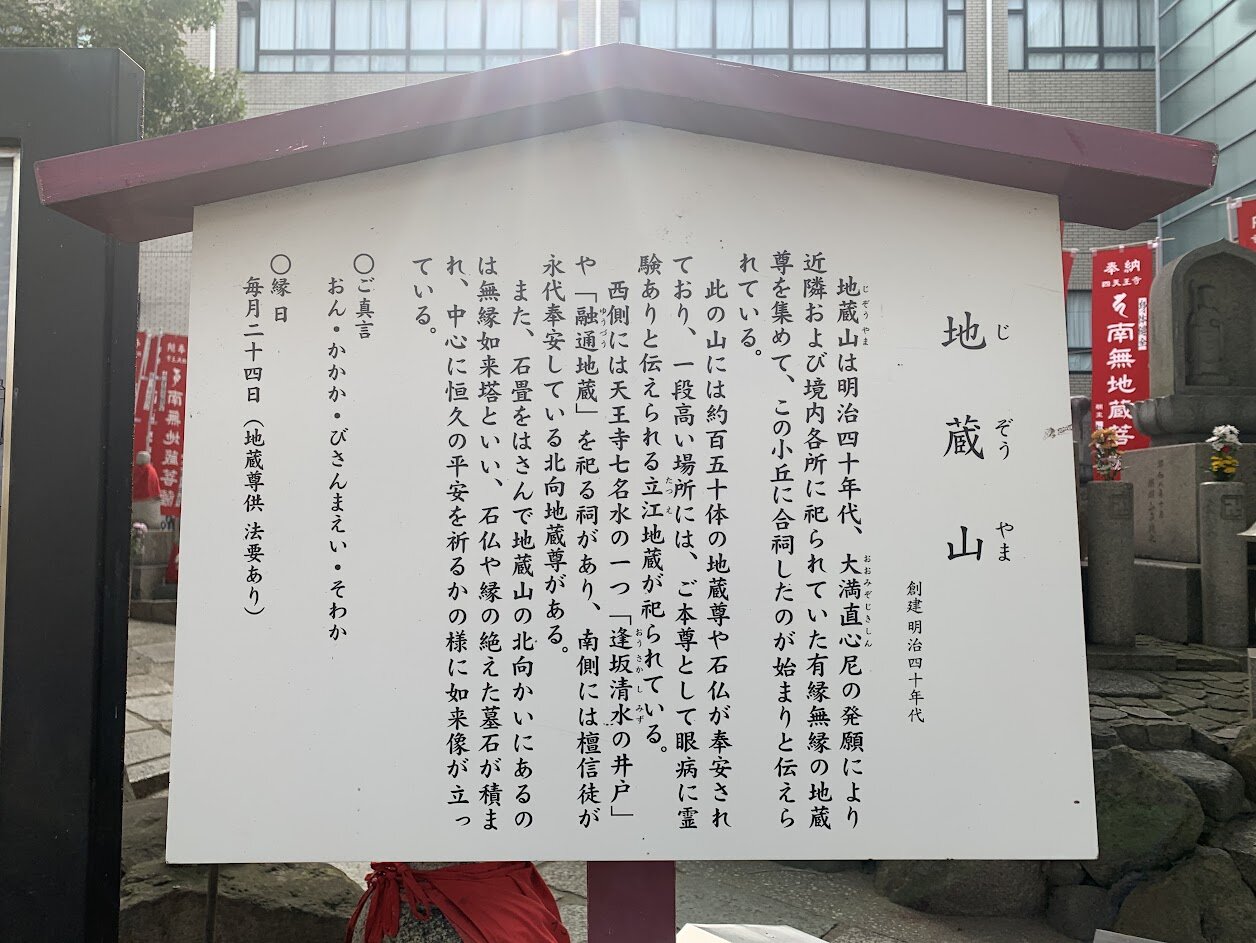 じぞうやま
地蔵山
創建明治四十年代
じぞうやま おおみぞじきしん
地蔵山は明治四十年代、大満直心尼の発願により
近隣および境内各所に祀られていた有縁無縁の地蔵
尊を集めて、この小丘に合祠したのが始まりと伝えら
れている。
此の山には約百五十体の地蔵尊や石仏が奉安され
ており、一段高い場所には、ご本尊として眼病に霊
たつえ
験ありと伝えられる立江地蔵が祀られている。
おうさかしみず
西側には天王寺七名水の一つ「逢坂清水の井戸」
ゆうづう
や「融通地蔵」を祀る祠があり、南側には檀信徒が
永代奉安している北向地蔵尊がある。
また、石畳をはさんで地蔵山の北向かいにあるの
は無縁如来塔といい、石仏や縁の絶えた墓石が積ま
れ、中心に恒久の平安を祈るかの様に如来像が立っ
ている。
〇ご真言
おん・かかか・びさんまえい・そわか
〇縁日
毎月二十四日（地蔵尊供 法要あり）
奉納
四天王寺
南無地蔵菩
南無地蔵菩薩